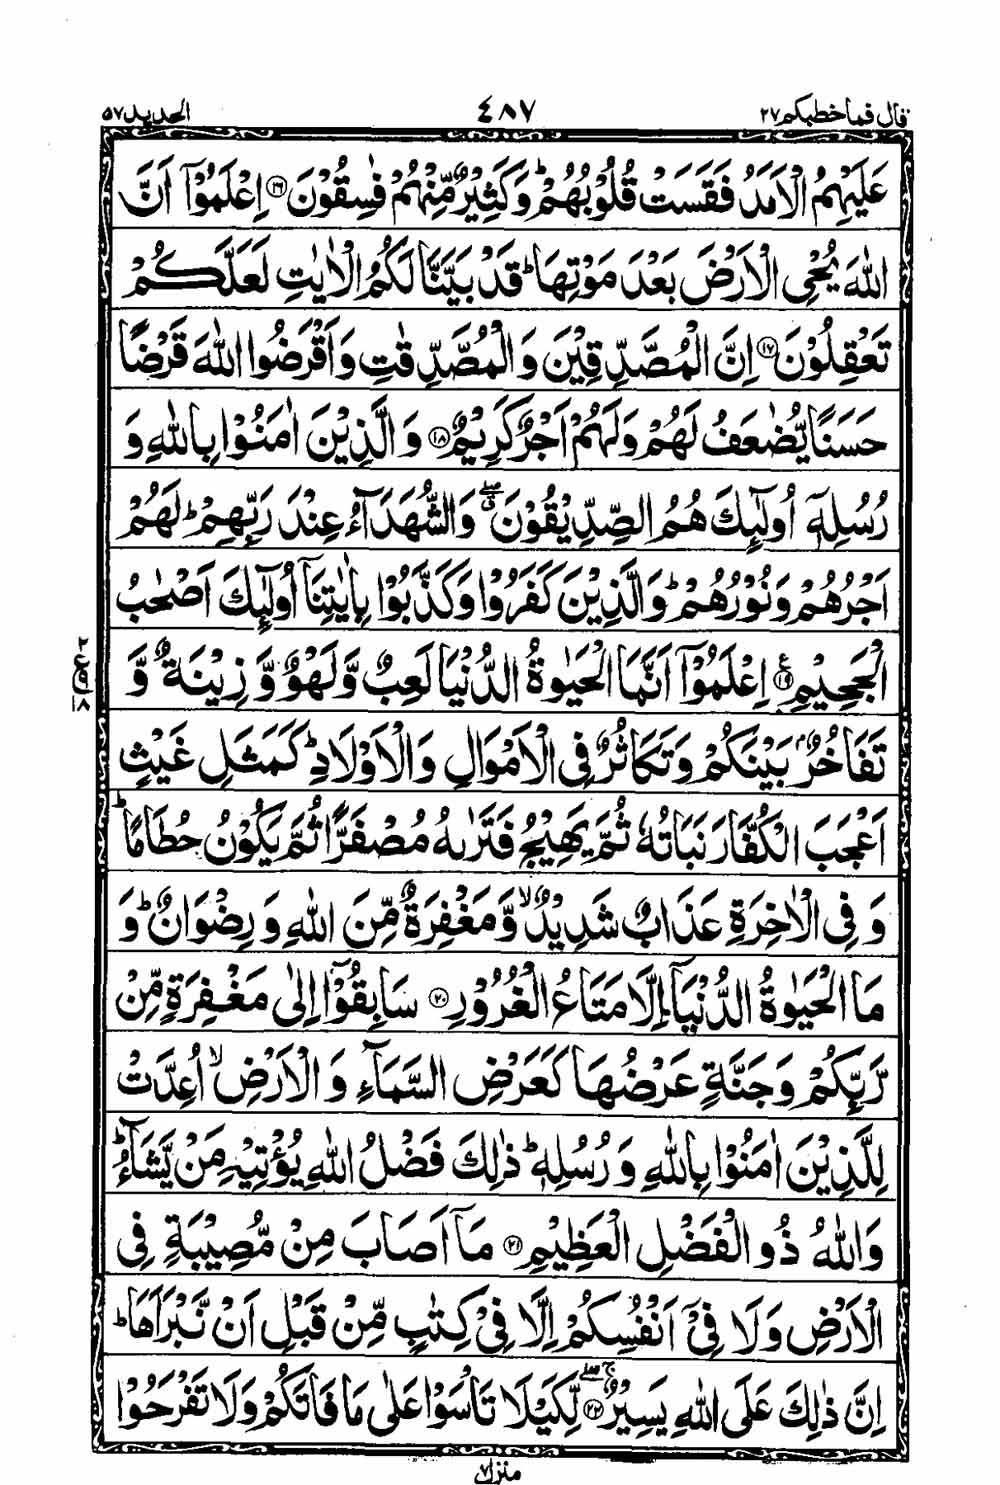 قال فما خطبكم ٢٧
٤٨٧
الحديد ٥٧
عَلَيْهِمُ الْاَمَدُ فَقَسَتْ قُلُوْبُهُمْ ؕ وَكَثِيْرٌ مِّنْهُمْ فٰسِقُوْنَ ۝١٦ اِعْلَمُوْۤا اَنَّ
اللّٰهَ يُحْيِ الْاَرْضَ بَعْدَ مَوْتِهَا ؕ قَدْ بَيَّنَّا لَكُمُ الْاٰيٰتِ لَعَلَّكُمْ
تَعْقِلُوْنَ ۝١٧ اِنَّ الْمُصَّدِّقِيْنَ وَالْمُصَّدِّقٰتِ وَاَقْرَضُوا اللّٰهَ قَرْضًا
حَسَنًا يُّضٰعَفُ لَهُمْ وَلَهُمْ اَجْرٌ كَرِيْمٌ ۝١٨ وَالَّذِيْنَ اٰمَنُوْا بِاللّٰهِ وَ
رُسُلِهٖۤ اُولٰٓئِكَ هُمُ الصِّدِّيْقُوْنَ ۖ وَالشُّهَدَآءُ عِنْدَ رَبِّهِمْ ؕ لَهُمْ
اَجْرُهُمْ وَنُوْرُهُمْ ؕ وَالَّذِيْنَ كَفَرُوْا وَكَذَّبُوْا بِاٰيٰتِنَاۤ اُولٰٓئِكَ اَصْحٰبُ
الْجَحِيْمِ ۝١٩ اِعْلَمُوْۤا اَنَّمَا الْحَيٰوةُ الدُّنْيَا لَعِبٌ وَّلَهْوٌ وَّ زِيْنَةٌ وَّ
تَفَاخُرٌۢ بَيْنَكُمْ وَتَكَاثُرٌ فِي الْاَمْوَالِ وَالْاَوْلَادِ ؕ كَمَثَلِ غَيْثٍ
اَعْجَبَ الْكُفَّارَ نَبَاتُهٗ ثُمَّ يَهِيْجُ فَتَرٰىهُ مُصْفَرًّا ثُمَّ يَكُوْنُ حُطَامًا ؕ
وَفِي الْاٰخِرَةِ عَذَابٌ شَدِيْدٌ ۙ وَّمَغْفِرَةٌ مِّنَ اللّٰهِ وَرِضْوَانٌ ؕ وَ
مَا الْحَيٰوةُ الدُّنْيَاۤ اِلَّا مَتَاعُ الْغُرُوْرِ ۝٢٠ سَابِقُوْۤا اِلٰى مَغْفِرَةٍ مِّنْ
رَّبِّكُمْ وَجَنَّةٍ عَرْضُهَا كَعَرْضِ السَّمَآءِ وَالْاَرْضِ ۙ اُعِدَّتْ
لِلَّذِيْنَ اٰمَنُوْا بِاللّٰهِ وَرُسُلِهٖ ؕ ذٰلِكَ فَضْلُ اللّٰهِ يُؤْتِيْهِ مَنْ يَّشَآءُ ؕ
وَاللّٰهُ ذُو الْفَضْلِ الْعَظِيْمِ ۝٢١ مَاۤ اَصَابَ مِنْ مُّصِيْبَةٍ فِي
الْاَرْضِ وَلَا فِيْۤ اَنْفُسِكُمْ اِلَّا فِيْ كِتٰبٍ مِّنْ قَبْلِ اَنْ نَّبْرَاَهَا ؕ
اِنَّ ذٰلِكَ عَلَى اللّٰهِ يَسِيْرٌ ۝٢٢ لِّكَيْلَا تَاْسَوْا عَلٰى مَا فَاتَكُمْ وَلَا تَفْرَحُوْا
منزل ٧